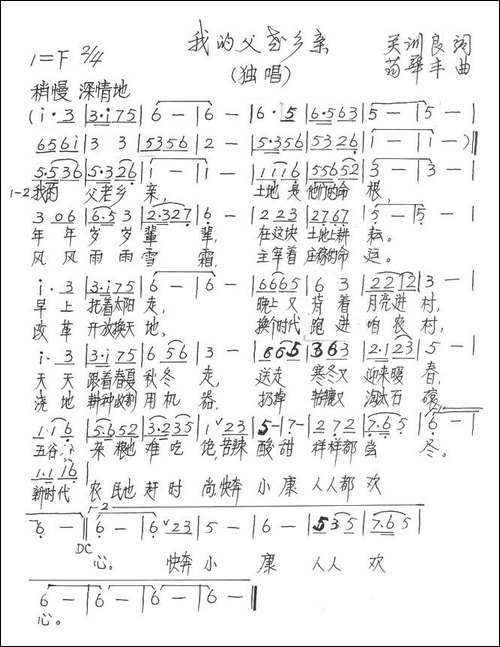 我的父老乡亲
1=F 2/4
(独唱)
关训良 词
荀华丰 曲
稍慢 深情地
(i·3|3·i75|6-|6-|6·5|6·563|5-|5-|
6561|3 3|5356|2-|5·356|5326|1-|1-)‖
5·536|5·326|1-|1-|1116|55652|3-|3-|
1-2我的 父老乡 亲, 土地 是 他们的命 根,
3 06|6·53|2·327|6-|223|2767|5-|5-|
年年 岁 岁 辈 辈, 在这块 土地上耕 耘。
风风 雨 雨 雪 霜, 主宰着 庄稼的命 运。
i·3|3·i75|6-|6-|6665|6 3|2212|3-|
早上 托着太阳 走, 晚上 又 背着 月亮进 村,
改革 开放换天 地, 换个时代 跑进 咱农 村,
i·3|3·i75|6 56|3-|665|363|2·123|5-|
天天 跟着春夏 秋冬 走, 送走 寒冬又 迎来暖 春,
浇地 耕种收割 用机 器, 扔掉 辘轳又 淘汰石 磙,
1·16|5·652|3·235|1ˇ23|5-|7-|272|7·65|6-|
五谷 杂粮也 难吃 饱,苦辣 酸 甜 样样都 尝 尽。
1·1 16
新时代 农民也 赶时 尚,快奔 小 康 人人都 欢
6-‖6-|6ˇ23|5-|6-|535|7·65|
DC
心。 快奔 小 康 人人 欢
6-|6-|6-|6-‖
心。